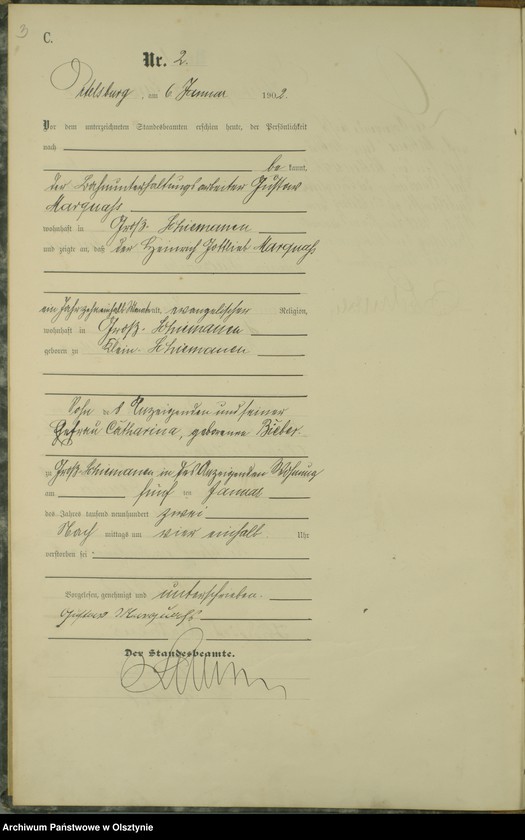 3
C.
Nr. 2.
Ortelsburg, am 6 Januar 1902.
Vor dem unterzeichneten Standesbeamten erschien heute, der Persönlichkeit
nach
be kannt,
der Bahnunterhaltungsarbeiter Gustav
Marquaß
wohnhaft in Groß-Schiemanen
und zeigte an, daß der Heinrich Gottlieb Marquaß
ein Jahr alt, evangelischer Religion,
wohnhaft in Groß-Schiemanen
geboren zu Klein-Schiemanen
Sohn des Anzeigenden und seiner
Ehefrau Catharina, geborenen Bieber
zu Groß-Schiemanen in des Anzeigenden Wohnung
am fünf ten Januar
des Jahres tausend neunhundert zwei
Nach mittags um vier einhalb Uhr
verstorben sei
Vorgelesen, genehmigt und unterschrieben.
Gustav Marquahs
Der Standesbeamte.
Archiwum Państwowe w Olsztynie